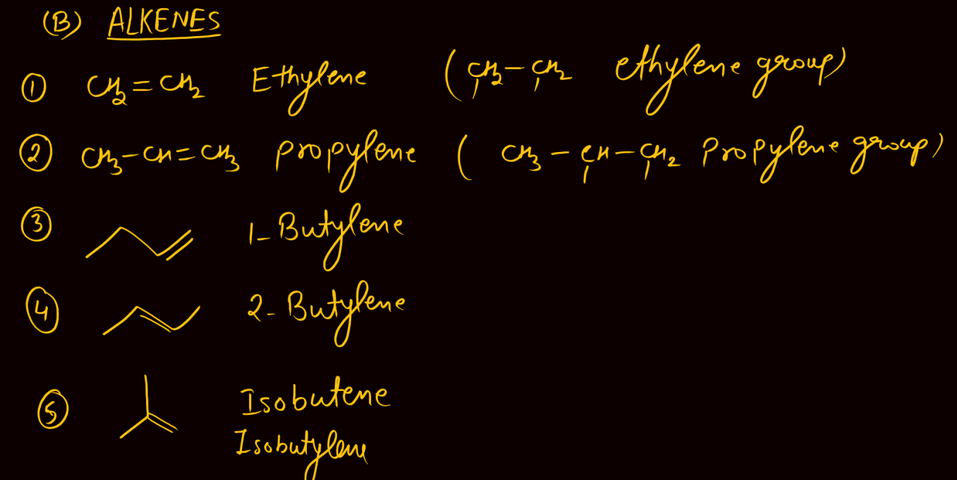 (B) ALKENES
① CH₂=CH₂ Ethylene (CH₂-CH₂ ethylene group)
② CH₃-CH=CH₃ propylene ( CH₃-CH-CH₂ Propylene group)
③ 1-Butylene
④ 2-Butylene
⑤ Isobutene
Isobutylene